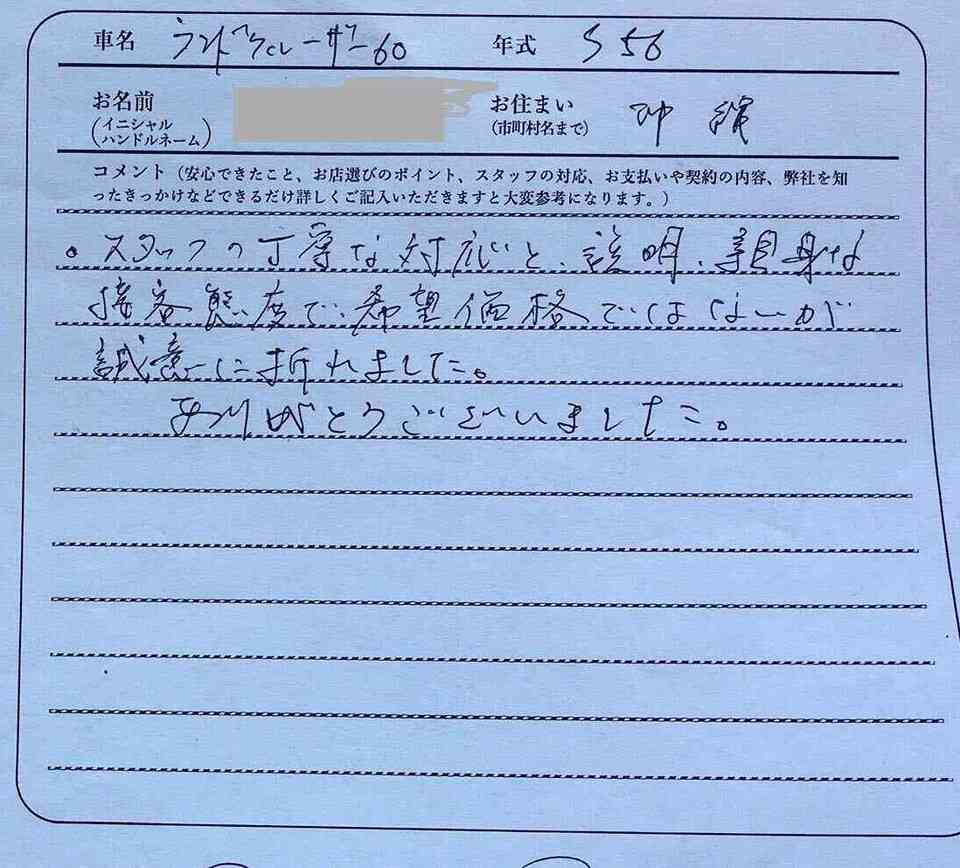 車名 ランドクルーザー60 年式 S56
お名前 (イニシャル ハンドルネーム) お住まい (市町村名まで) 沖縄
コメント（安心できたこと、お店選びのポイント、スタッフの対応、お支払いや契約の内容、弊社を知
ったきっかけなどできるだけ詳しくご記入いただきますと大変参考になります。）
。スタッフの丁寧な対応と、説明、親身な
接客態度で、希望価格ではないが
誠意に折れました。
ありがとうございました。